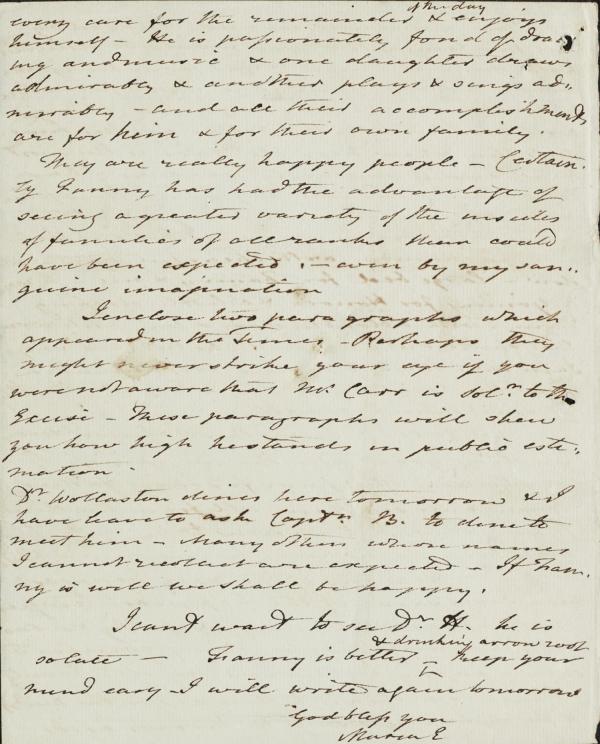 of the day
every care for the remainder & enjoys
himself – He is passionately fond of draw
ing and music & one daughter draws
admirably & another plays & sings ad-
mirably – and all their accomplishments
are for him & for their own family.
They are really happy people – Certain-
ly Fanny has had the advantage of
seeing a greater variety of the insides
of families of all ranks than could
have been expected. – even by my san-
guine imagination
I enclose two paragraphs which
appeared in the Times – Perhaps they
might never strike your eye if you
were not aware that Mr. Carr is Solr. to the
Excise – These paragraphs will shew
you how high he stands in public esti-
mation.
Dr Wollaston dines here tomorrow & I
have leave to ask Captn. B. to dine to
meet him – Many others whose names
I cannot recollect are expected – If Fan-
ny is well we shall be happy.
I can't wait to see Dr H. he is
so late – Fanny is better & drinking arrow root – Keep your
mind easy – I will write again tomorrow
God bless you
Maria E